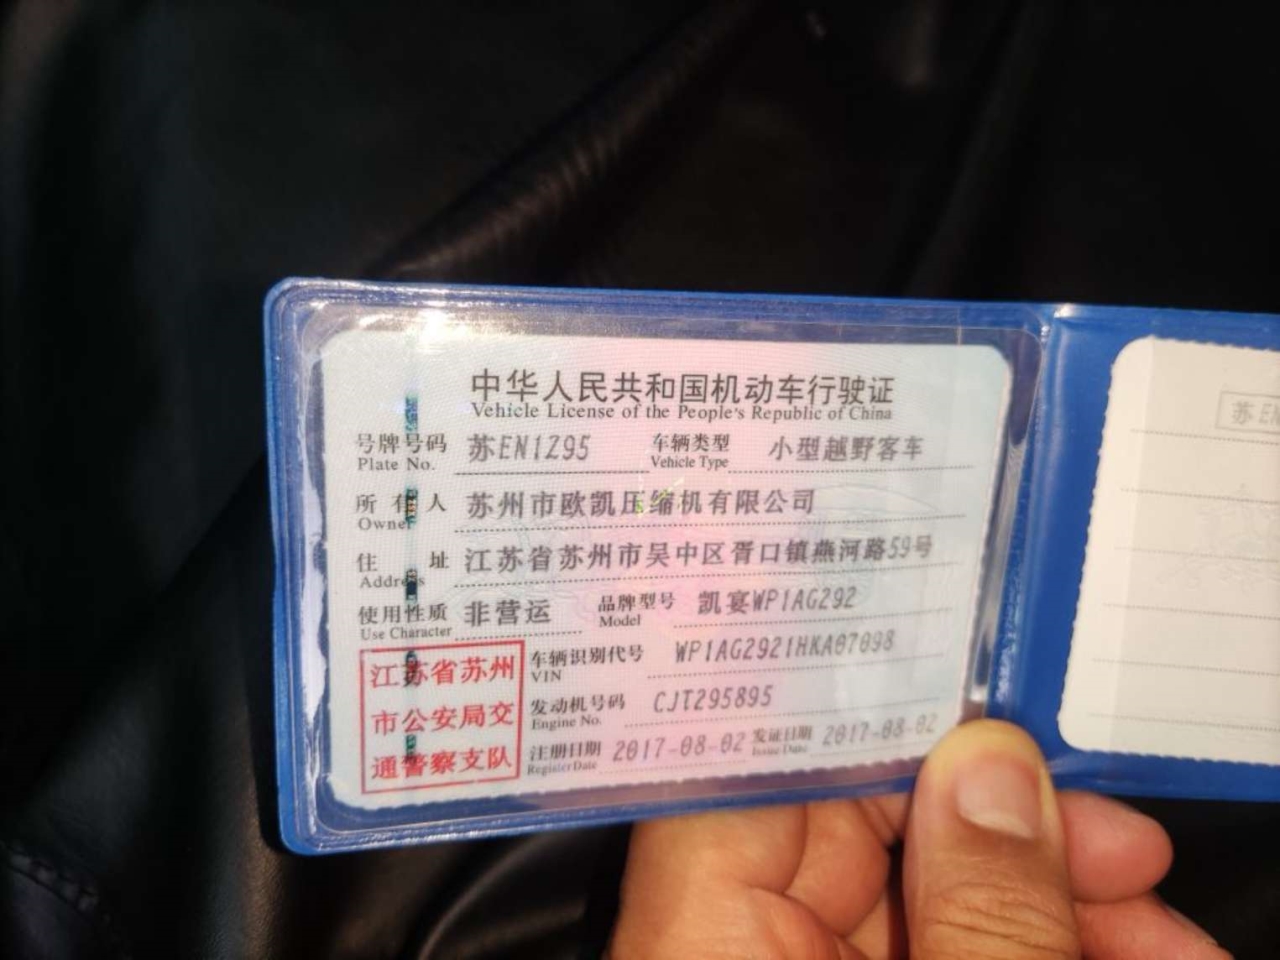 中华人民共和国机动车行驶证
Vehicle License of the People's Republic of China
号牌号码 苏EN1Z95 车辆类型 小型越野客车
Plate No. Vehicle Type
所有人 苏州市欧凯压缩机有限公司
Owner
住址 江苏省苏州市吴中区胥口镇燕河路59号
Address
使用性质 非营运 品牌型号 凯宴WP1AG292
Use Character Model
江苏省苏州
市公安局交
通警察支队
车辆识别代号 WP1AG2921HKA07098
VIN
发动机号码 CJT295895
Engine No.
注册日期 2017-08-02 发证日期 2017-08-02
Register Date Issue Date
苏E